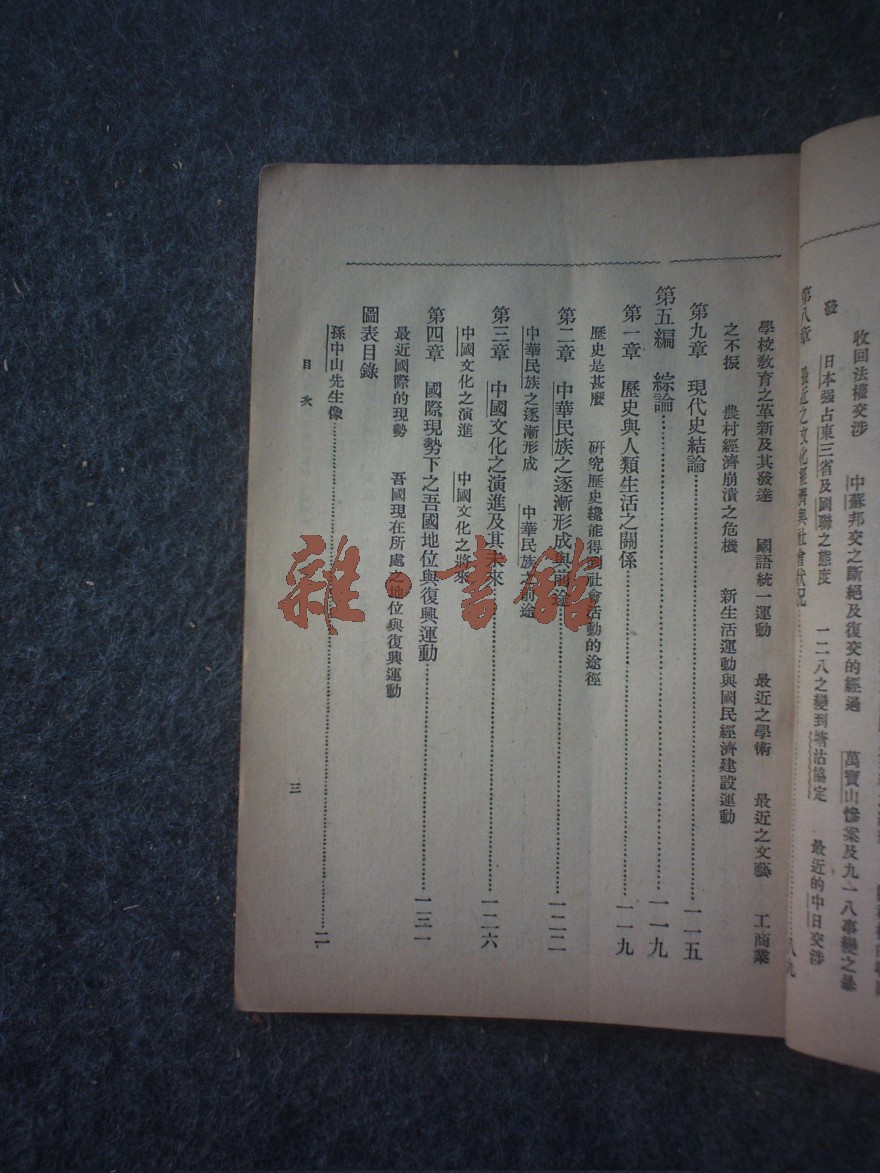 收回法權交涉　中蘇邦交之斷絕及復交的經過　萬寶山慘案及九一八事變之暴
發　日本强占東三省及國聯之態度　一二八之變到塘沽協定　最近的中日交涉
第八章　最近之文化經濟與社會狀況……八九
學校教育之革新及其發達　國語統一運動　最近之學術　最近之文藝　工商業
之不振　農村經濟崩潰之危機　新生活運動與國民經濟建設運動
第九章　現代史結論……一一五
第五編　綜論……一一九
第一章　歷史與人類生活之關係……一一九
歷史是甚麼　研究歷史纔能得到社會活動的途徑
第二章　中華民族之逐漸形成與前途……一二二
中華民族之逐漸形成　中華民族之前途
第三章　中國文化之演進及其未來……一二六
中國文化之演進　中國文化之將來
第四章　國際現勢下之吾國地位與復興運動……一三一
最近國際的現勢　吾國現在所處之地位與復興運動
圖表目錄
孫中山先生像……二
目次
三
雜·書館